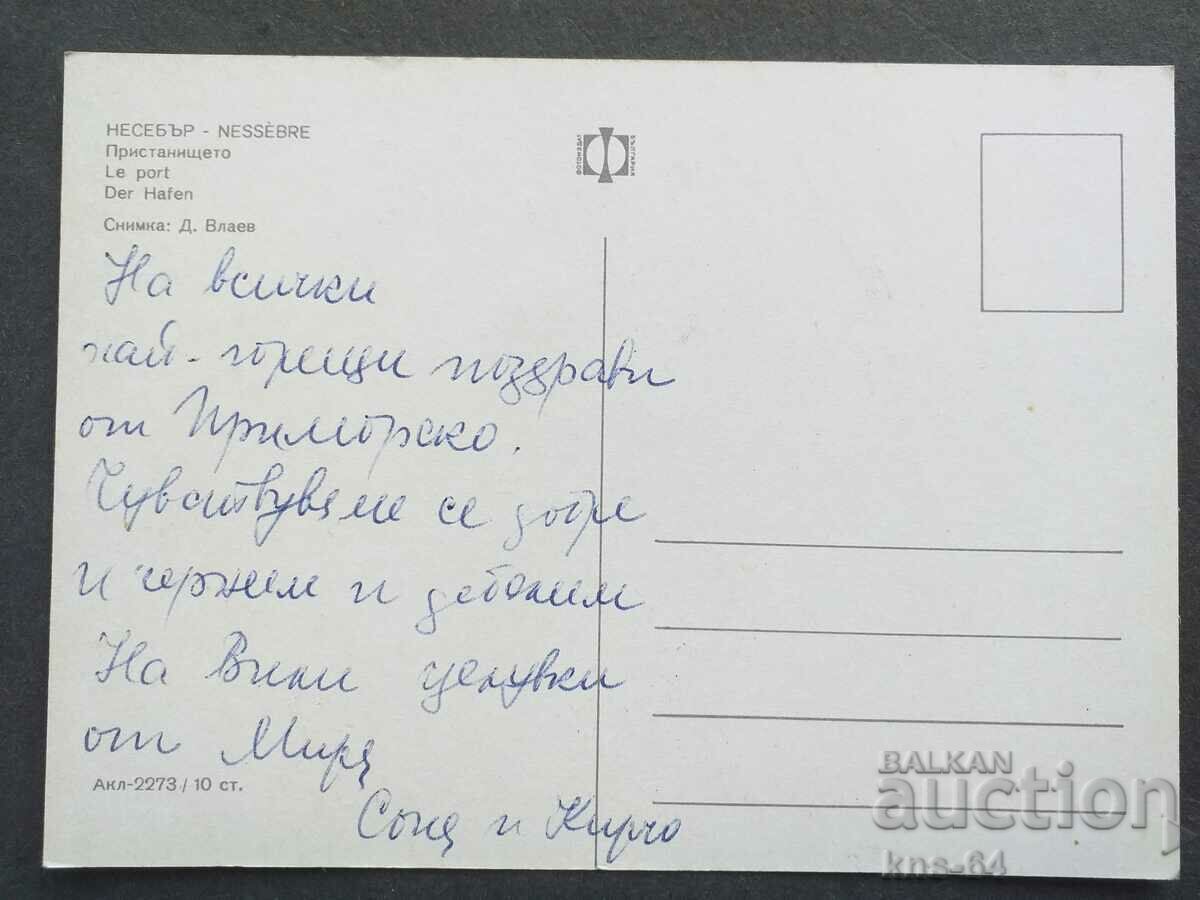 НЕСЕБЪР - NESSÈBRE
Пристанището
Le port
Der Hafen
Снимка: Д. Влаев
ФОТОИЗДАТ
БЪЛГАРИЯ
На всички
най-горещи поздрави
от Приморско.
Чувствуваме се добре
и черним и дебелим
На Вили целувки
от Мира
Соня и Кирчо
Акл-2273/10 ст.
BALKAN
auction
kns-64